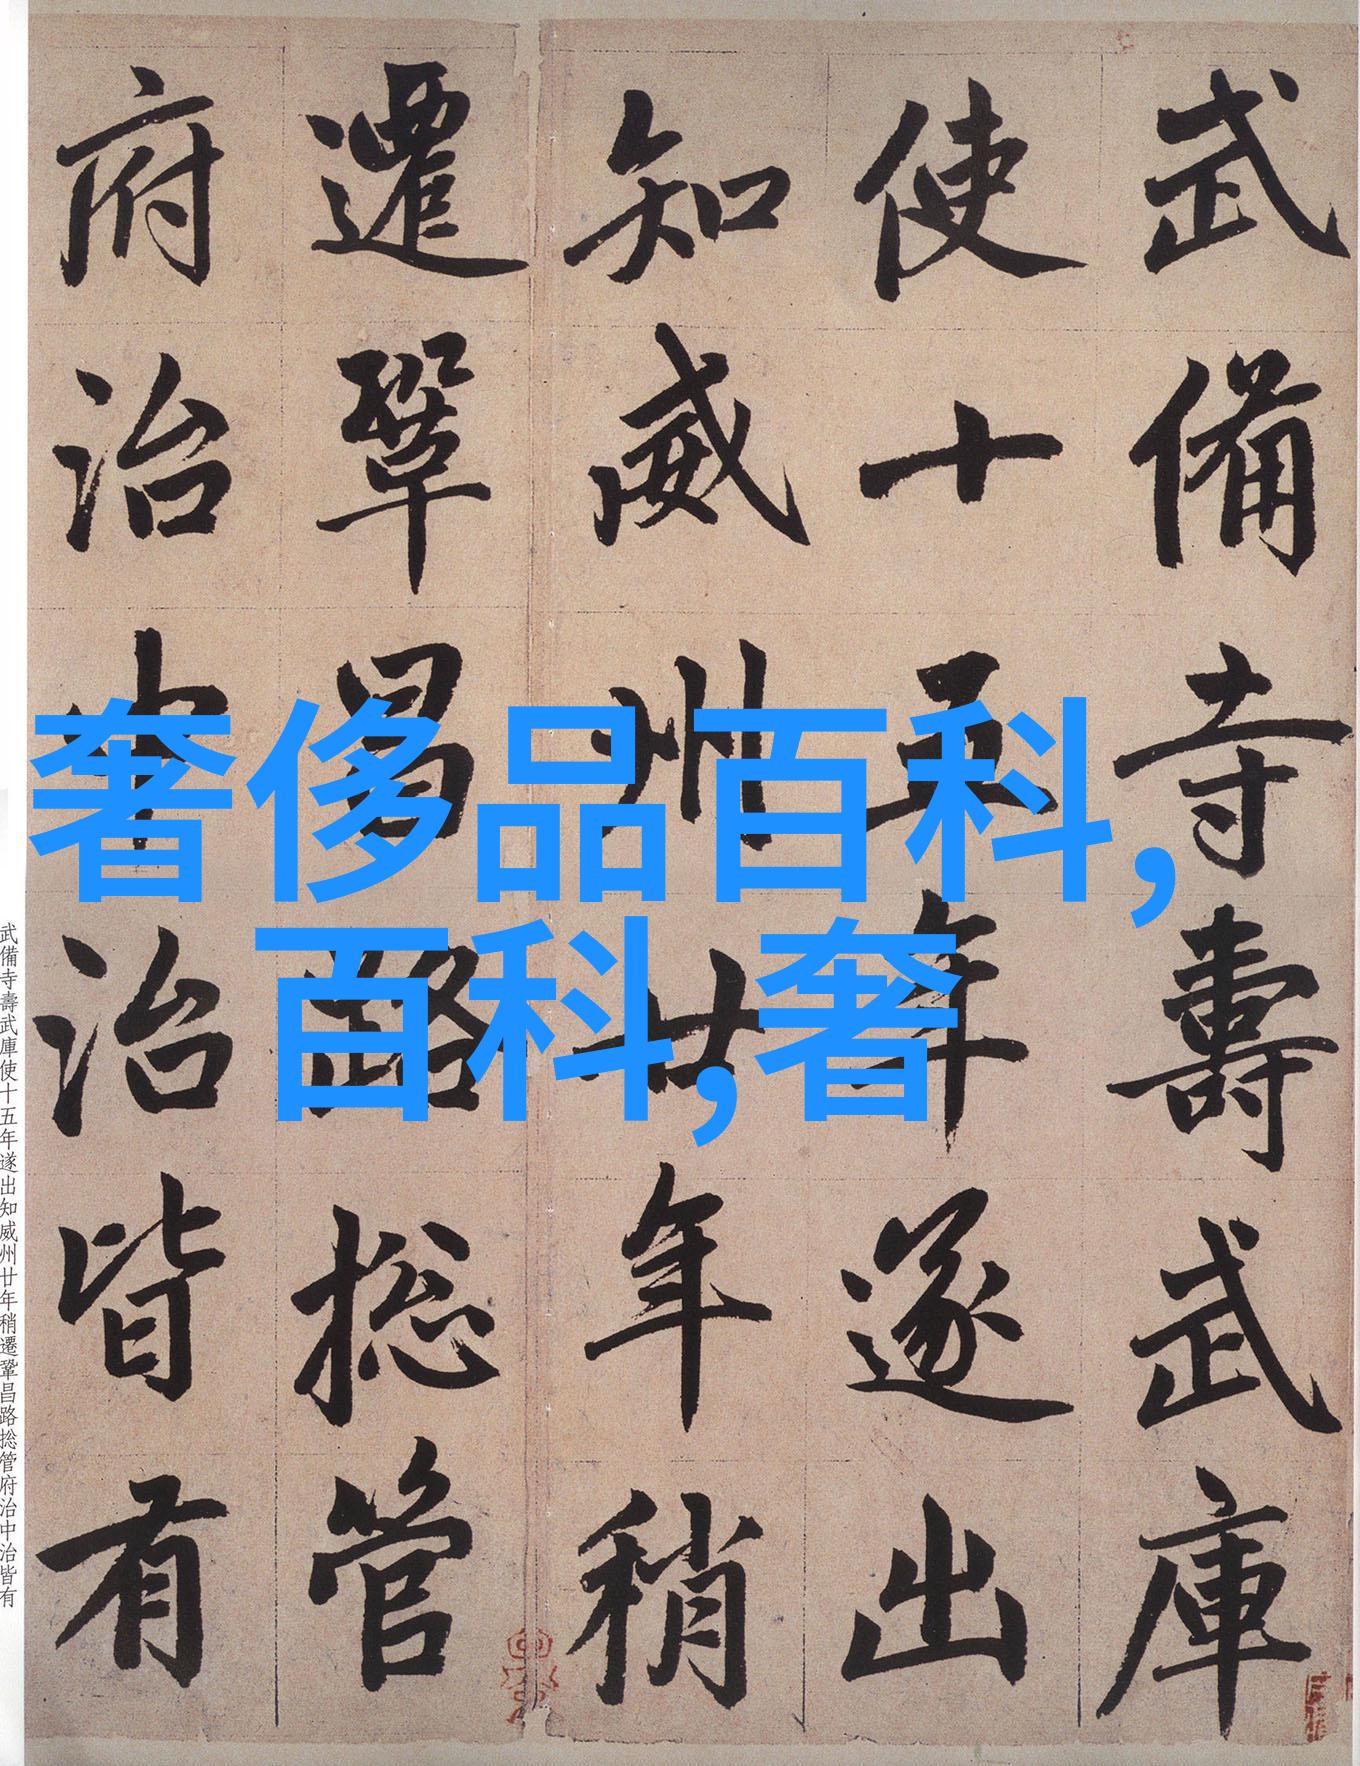 武備寺壽武庫
使十五年遂出
知威州廿年稍
遷鞏昌路捴管
府治中治皆有
奢侈品百科,
百科,奢
武備寺壽武庫使十五年遂出知威州廿年稍遷鞏昌路捴管府治中治皆有